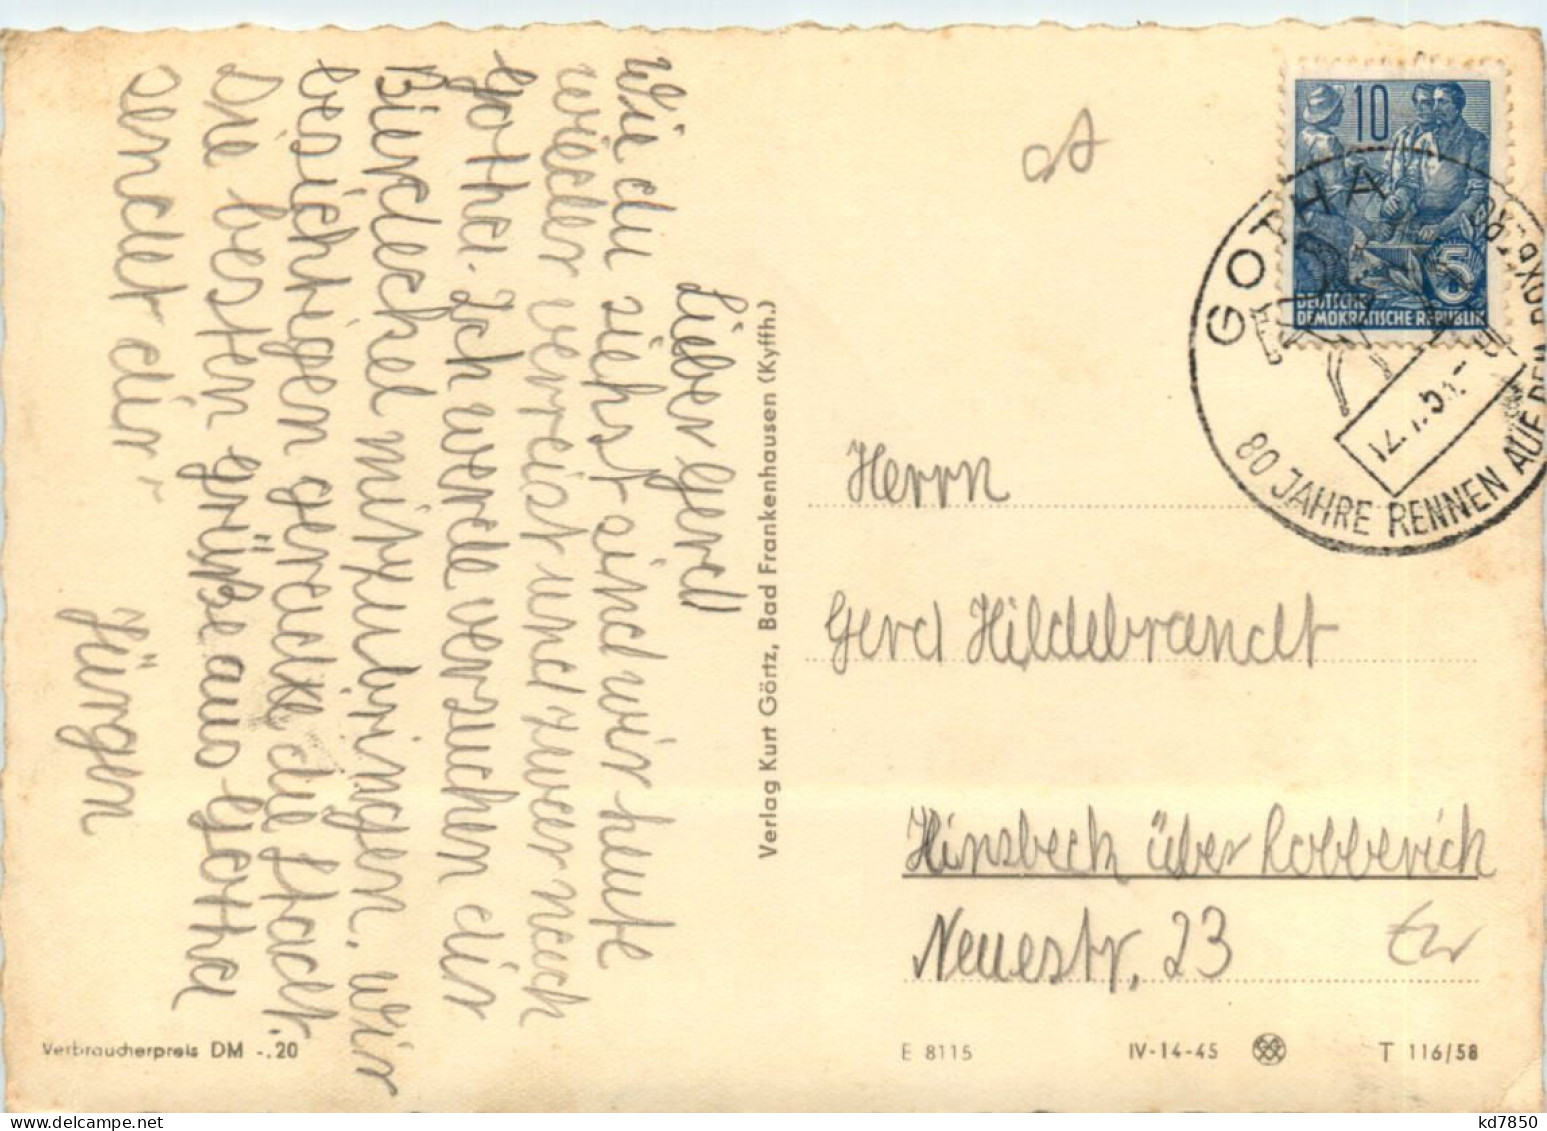 Lieber Gerd
Wie du siehst sind wir heute
wieder verreist und zwar nach
Gotha. Ich werde versuchen dir
Bierdeckel mitzubringen. Wir
besichtigen gerade die Stadt.
Die besten Grüße aus Gotha
sendet dir
Jürgen
Verlag Kurt Görtz, Bad Frankenhausen (Kyffh.)
10
5
DEUTSCHE
DEMOKRATISCHE REPUBLIK
GOTHA
80 JAHRE RENNEN AUF DEM BOXBERG
12.7.58
Herrn
Gerd Hildebrandt
Hinsbeck über Lobberich
Neuestr. 23
Verbraucherpreis DM -.20
E 8115
IV-14-45
T 116/58
kd7850